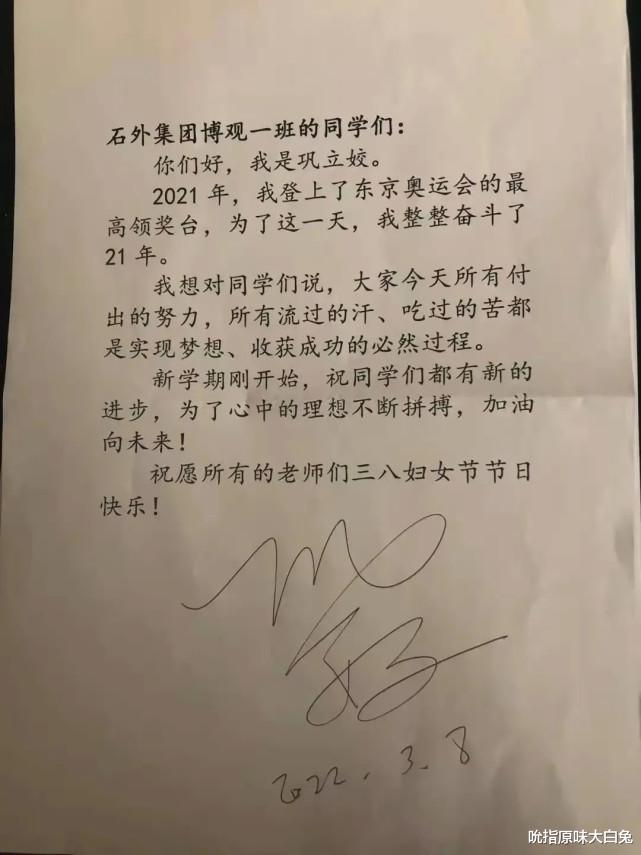 石外集团博观一班的同学们：
你们好，我是巩立姣。
2021年，我登上了东京奥运会的最
高领奖台，为了这一天，我整整奋斗了
21年。
我想对同学们说，大家今天所有付
出的努力，所有流过的汗、吃过的苦都
是实现梦想、收获成功的必然过程。
新学期刚开始，祝同学们都有新的
进步，为了心中的理想不断拼搏，加油
向未来！
祝愿所有的老师们三八妇女节节日
快乐！
2022.3.8
吮指原味大白兔